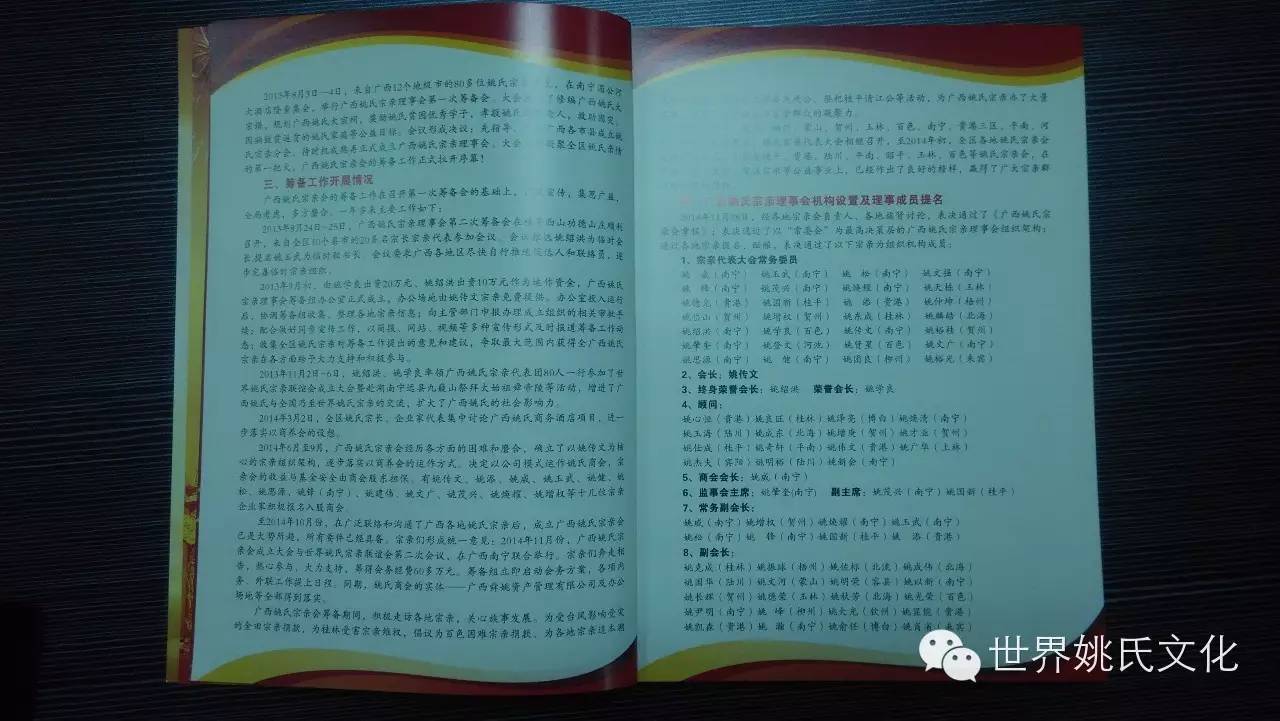 2013年8月3日—4日，来自广西12个地级市的80多位姚氏宗亲 ，在南宁湄公河
大酒店隆重集会，举行广西姚氏宗亲理事会第一次筹备会。大会 了修编广西姚氏大
宗谱，规划广西姚氏大宗祠，奖励姚氏贫困优秀学子，孝敬姚氏 老人，救助因灾、
因病致贫返贫的姚氏家庭等公益目标。会议形成决议：先指导、 广西各市县成立姚
氏宗亲分会，待时机成熟再正式成立广西姚氏宗亲理事会。大会 聚全区姚氏亲情
的第一把火，广西姚氏宗亲会的筹备工作正式拉开序幕！
三、筹备工作开展情况
广西姚氏宗亲会的筹备工作在召开第一次筹备会的基础上， 宣传，集思广益，
全局考虑，多方磨合。一年多来主要工作如下：
2013年9月24日—25日，广西姚氏宗亲理事会第二次筹备会在 西山功德山庄顺利
召开，来自全区10个县市的20多名宗长宗亲代表参加会议。会议 选姚绍洪为临时会
长，提名姚玉武为临时秘书长。会议要求广西各地区尽快自行推选 人和联络员，逐
步完善临时宗亲组织。
2013年9月初，由姚学良出资20万元、姚绍洪出资10万元作为运作资金，广西姚氏
宗亲理事会筹备组办公室正式成立。办公场地由姚传文宗亲免费提供。办公室投入运行
后，协调筹备组收集、整理各地宗亲信息；向主管部门申报办理成立组织的相关审批手
续；配合做好同步宣传工作，以简报、网站、视频等多种宣传形式及时报道筹备工作动
态；收集全区姚氏宗亲对筹备工作提出的意见和建议，争取最大范围内获得全广西姚氏
宗亲在各方面给予大力支持和积极参与。
2013年11月2日-6日，姚绍洪、姚学良率领广西姚氏宗亲代表团80人一行参加了世
界姚氏宗亲联谊会成立大会暨赴湖南宁远县九嶷山祭拜太始祖舜帝陵等活动，增进了广
西姚氏与全国乃至世界姚氏宗亲的交流，扩大了广西姚氏的社会影响力。
2014年3月2日，全区姚氏宗长、企业家代表集中讨论广西姚氏商务酒店项目，进一
步落实以商养会的设想。
2014年6月至9月，广西姚氏宗亲会经历各方面的困难和磨合，确立了以姚传文为核
心的宗亲组织架构，逐步落实以商养会的运作方式。决定以公司模式运作姚氏商会，宗
亲会的收益与基金安全由商会股东担保。有姚传文、姚添、姚威、姚玉武、姚健、姚
松、姚思源、姚锋（南宁）、姚建伟、姚文广、姚茂兴、姚焕耀、姚增权等十几位宗亲
企业家积极报名入股商会。
至2014年10月份，在广泛联络和沟通了广西各地姚氏宗亲后，成立广西姚氏宗亲会
已是大势所趋，所有要件已经具备。宗亲们形成统一意见：2014年11月份，广西姚氏宗
亲会成立大会与世界姚氏宗亲联谊会第二次会议，在广西南宁联合举行。宗亲们奔走相
告，热心参与，大力支持，筹得会务经费60多万元。筹备组立即启动会务方案，各项内
务、外联工作提上日程。同期，姚氏商会的实体——广西舜姚资产管理有限公司及办公
场地等全部得到落实。
广西姚氏宗亲会筹备期间，积极走访各地宗亲，关心族事发展。为受台风影响受灾
的金田宗亲捐款，为桂林受害宗亲维权，倡议为百色困难宗亲捐款，为各地宗亲追本溯
公、祭祀桂平清江公等活动，为广西姚氏宗亲办了大量
群众的凝聚力。
蒙山、贺州、玉林、百色、南宁、贵港三区、平南、河
宗亲代表大会相继召开，至2014年初，全区各地姚氏宗亲会
贵港、陆川、平南、昭平、玉林、百色等姚氏宗亲会，在
等公益事业上，已经作出了良好的榜样，赢得了广大宗亲群
姚氏宗亲理事会机构设置及理事成员提名
2014年11月08日，经各地宗亲会负责人、各地族贤讨论，表决通过了《广西姚氏宗
亲会章程》；表决通过了以“常委会”为最高决策层的广西姚氏宗亲理事会组织架构；
通过各地宗亲提名、酝酿，表决通过了以下宗亲为组织机构成员：
1、宗亲代表大会常务委员
姚 威（南宁） 姚玉武（南宁） 姚 松（南宁） 姚文强（南宁）
姚 锋（南宁） 姚茂兴（南宁） 姚焕耀（南宁） 姚天栋（玉林）
姚德允（贵港） 姚国新（桂平） 姚 添（贵港） 姚仲坤（梧州）
姚位山（贺州） 姚增权（贺州） 姚东成（桂林） 姚麟皓（北海）
姚绍洪（南宁） 姚学良（百色） 姚传文（南宁） 姚裕桂（贺州）
姚肇奎（南宁） 姚登文（河池） 姚贤星（百色） 姚文广（南宁）
姚思源（南宁） 姚 健（南宁） 姚国良（柳州） 姚裕光（来宾）
2、会长：姚传文
3、终身荣誉会长：姚绍洪 荣誉会长：姚学良
4、顾问：
姚心恒（贵港）姚良匡（桂林）姚泽亮（博白）姚焕清（南宁）
姚玉海（陆川）姚成东（北海）姚增庚（贺州）姚才业（贺州）
姚仕成（桂平）姚奇轩（平南）姚伟文（贵港）姚广华（上林）
姚杰大（宾阳）姚明裕（陆川）姚朝会（南宁）
5、商会会长：姚威（南宁）
6、监事会主席：姚肇奎(南宁) 副主席：姚茂兴（南宁）姚国新（桂平）
7、常务副会长：
姚威（南宁）姚增权（贺州）姚焕耀（南宁）姚玉武（南宁）
姚松（南宁）姚 锋（南宁）姚国新（桂平）姚 添（贵港）
8、副会长：
姚克成（桂林）姚振球（梧州）姚佐标（北流）姚成伟（北海）
姚国华（陆川）姚文河（蒙山）姚明荣（容县）姚以新（南宁）
姚长辉（贺州）姚德荣（玉林）姚秋芳（北海）姚光荣（百色）
姚尹明（南宁）姚 峰（柳州）姚大光（钦州）姚霆能（贵港）
姚凯森（贵港）姚 瀚（南宁）姚俞任（博白）姚肖省（来宾）
世界姚氏文化